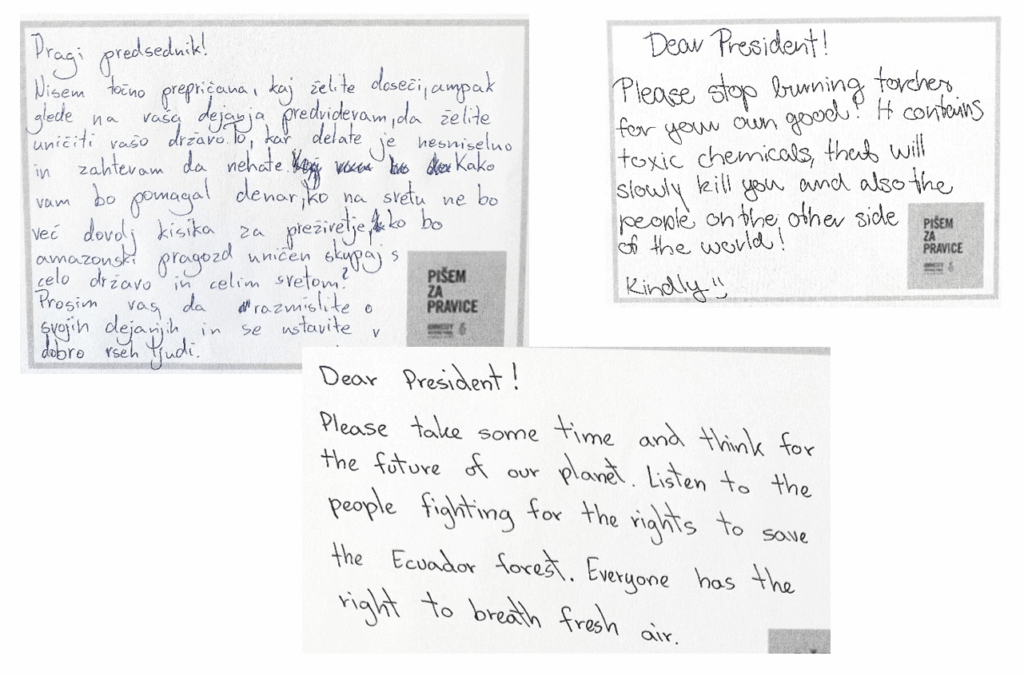 Dragi predsednik!
Nisem točno prepričana, kaj želite doseči, ampak
glede na vaša dejanja predvidevam, da želite
uničiti vašo državo. To, kar delate je nesmiselno
in zahtevam da nehate. Kako
vam bo pomagal denar, ko na svetu ne bo
več dovolj kisika za preživetje, ko bo
amazonski pragozd uničen skupaj s
celo državo in celim svetom?
Prosim vas, da razmislite o
svojih dejanjih in se ustavite v
dobro vseh ljudi.
PIŠEM
ZA
PRAVICE
AMNESTY
Dear President!
Please stop burning torches
for your own good! It contains
toxic chemicals, that will
slowly kill you and also the
people on the other side
of the world!
Kindly
PIŠEM
ZA
PRAVICE
Dear President!
Please take some time and think for
the future of our planet. Listen to the
people fighting for the rights to save
the Ecuador forest. Everyone has the
right to breath fresh air.